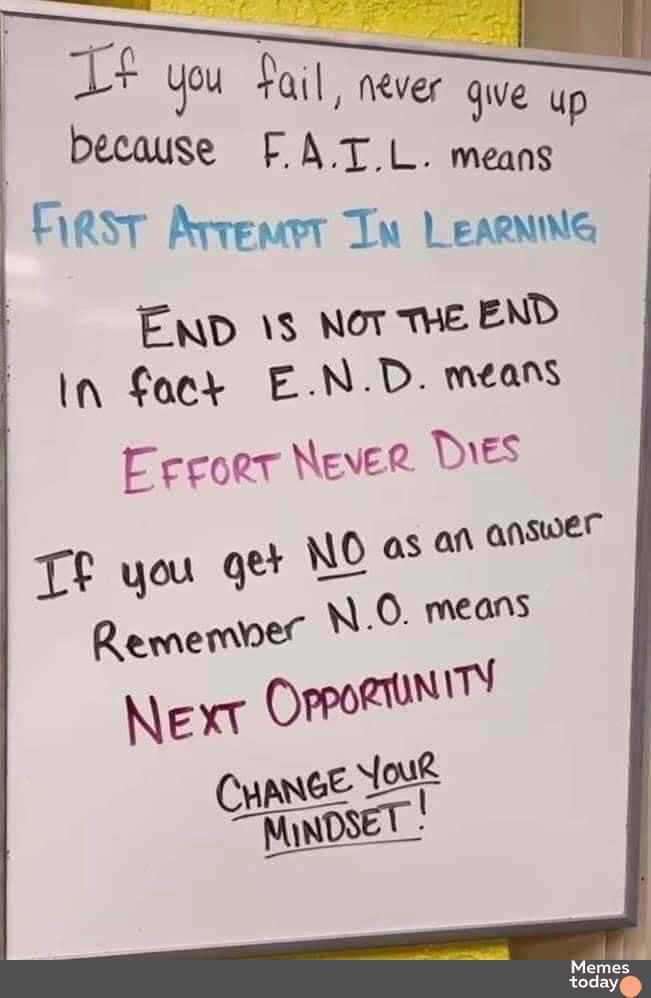 If you fail, never give up
because F.A.I.L. means
FIRST ATTEMPT IN LEARNING
END IS NOT THE END
In fact E.N.D. means
EFFORT NEVER DIES
If you get NO as an answer
Remember N.O. means
NEXT OPPORTUNITY
CHANGE YOUR
MINDSET!
Memes
today